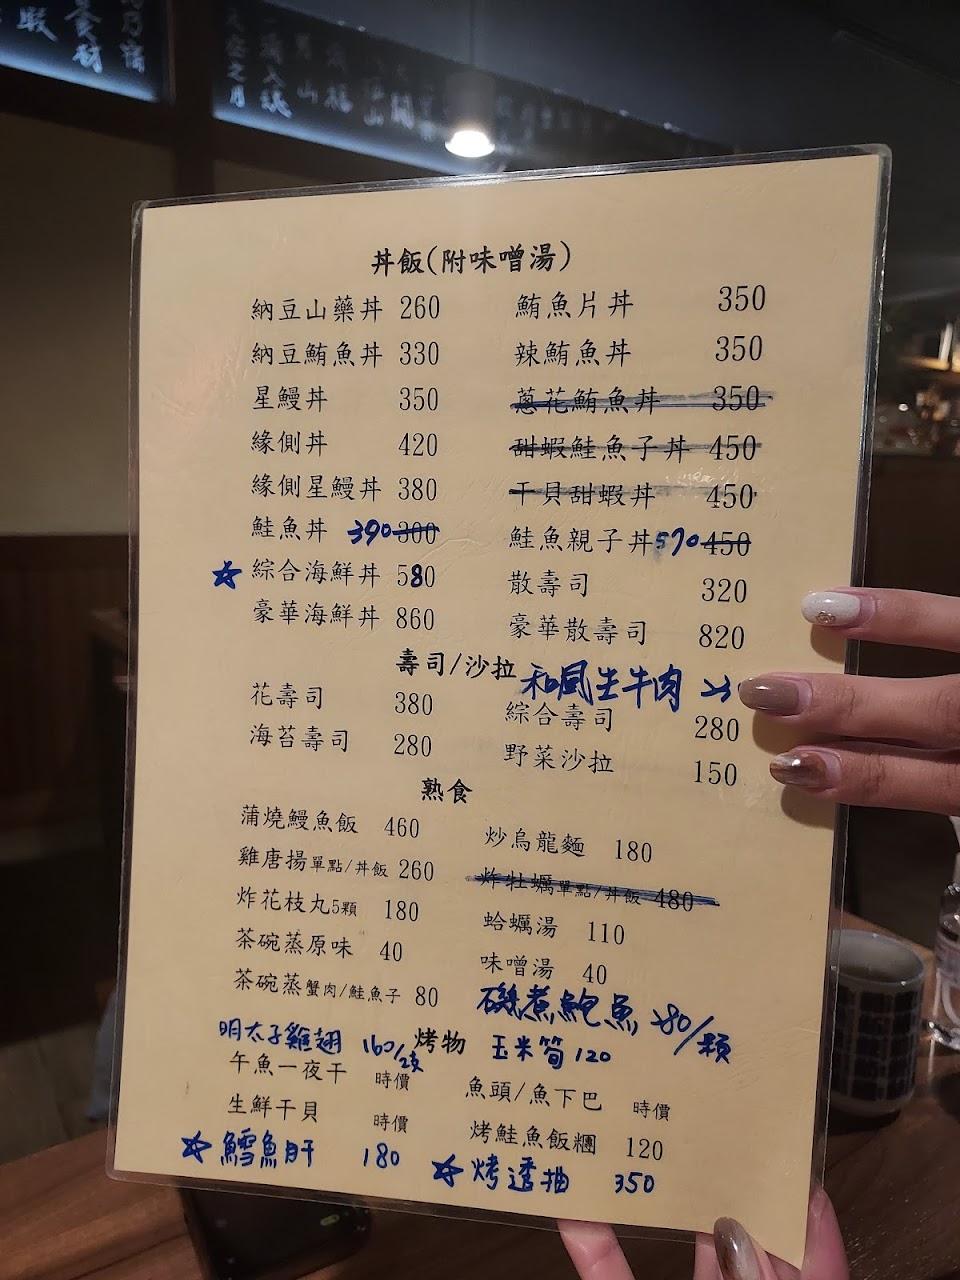 丼飯(附味噌湯)
納豆山藥丼 260 鮪魚片丼 350
納豆鮪魚丼 330 辣鮪魚丼 350
星鰻丼 350 蔥花鮪魚丼 350
緣側丼 420 甜蝦鮭魚子丼 450
緣側星鰻丼 380 干貝甜蝦丼 450
鮭魚丼 390 300 鮭魚親子丼 570 450
☆ 綜合海鮮丼 580 散壽司 320
豪華海鮮丼 860 豪華散壽司 820
壽司/沙拉 和風生牛肉
花壽司 380 綜合壽司 280
海苔壽司 280 野菜沙拉 150
熟食
蒲燒鰻魚飯 460 炒烏龍麵 180
雞唐揚單點/丼飯 260 炸牡蠣單點/丼飯 480
炸花枝丸5顆 180 蛤蠣湯 110
茶碗蒸原味 40 味噌湯 40
茶碗蒸蟹肉/鮭魚子 80 磯煮鮑魚 280/顆
明太子雞翅 160/支 烤物 玉米筍 120
午魚一夜干 時價 魚頭/魚下巴 時價
生鮮干貝 時價 烤鮭魚飯糰 120
☆ 鱈魚肝 180 ☆ 烤透抽 350